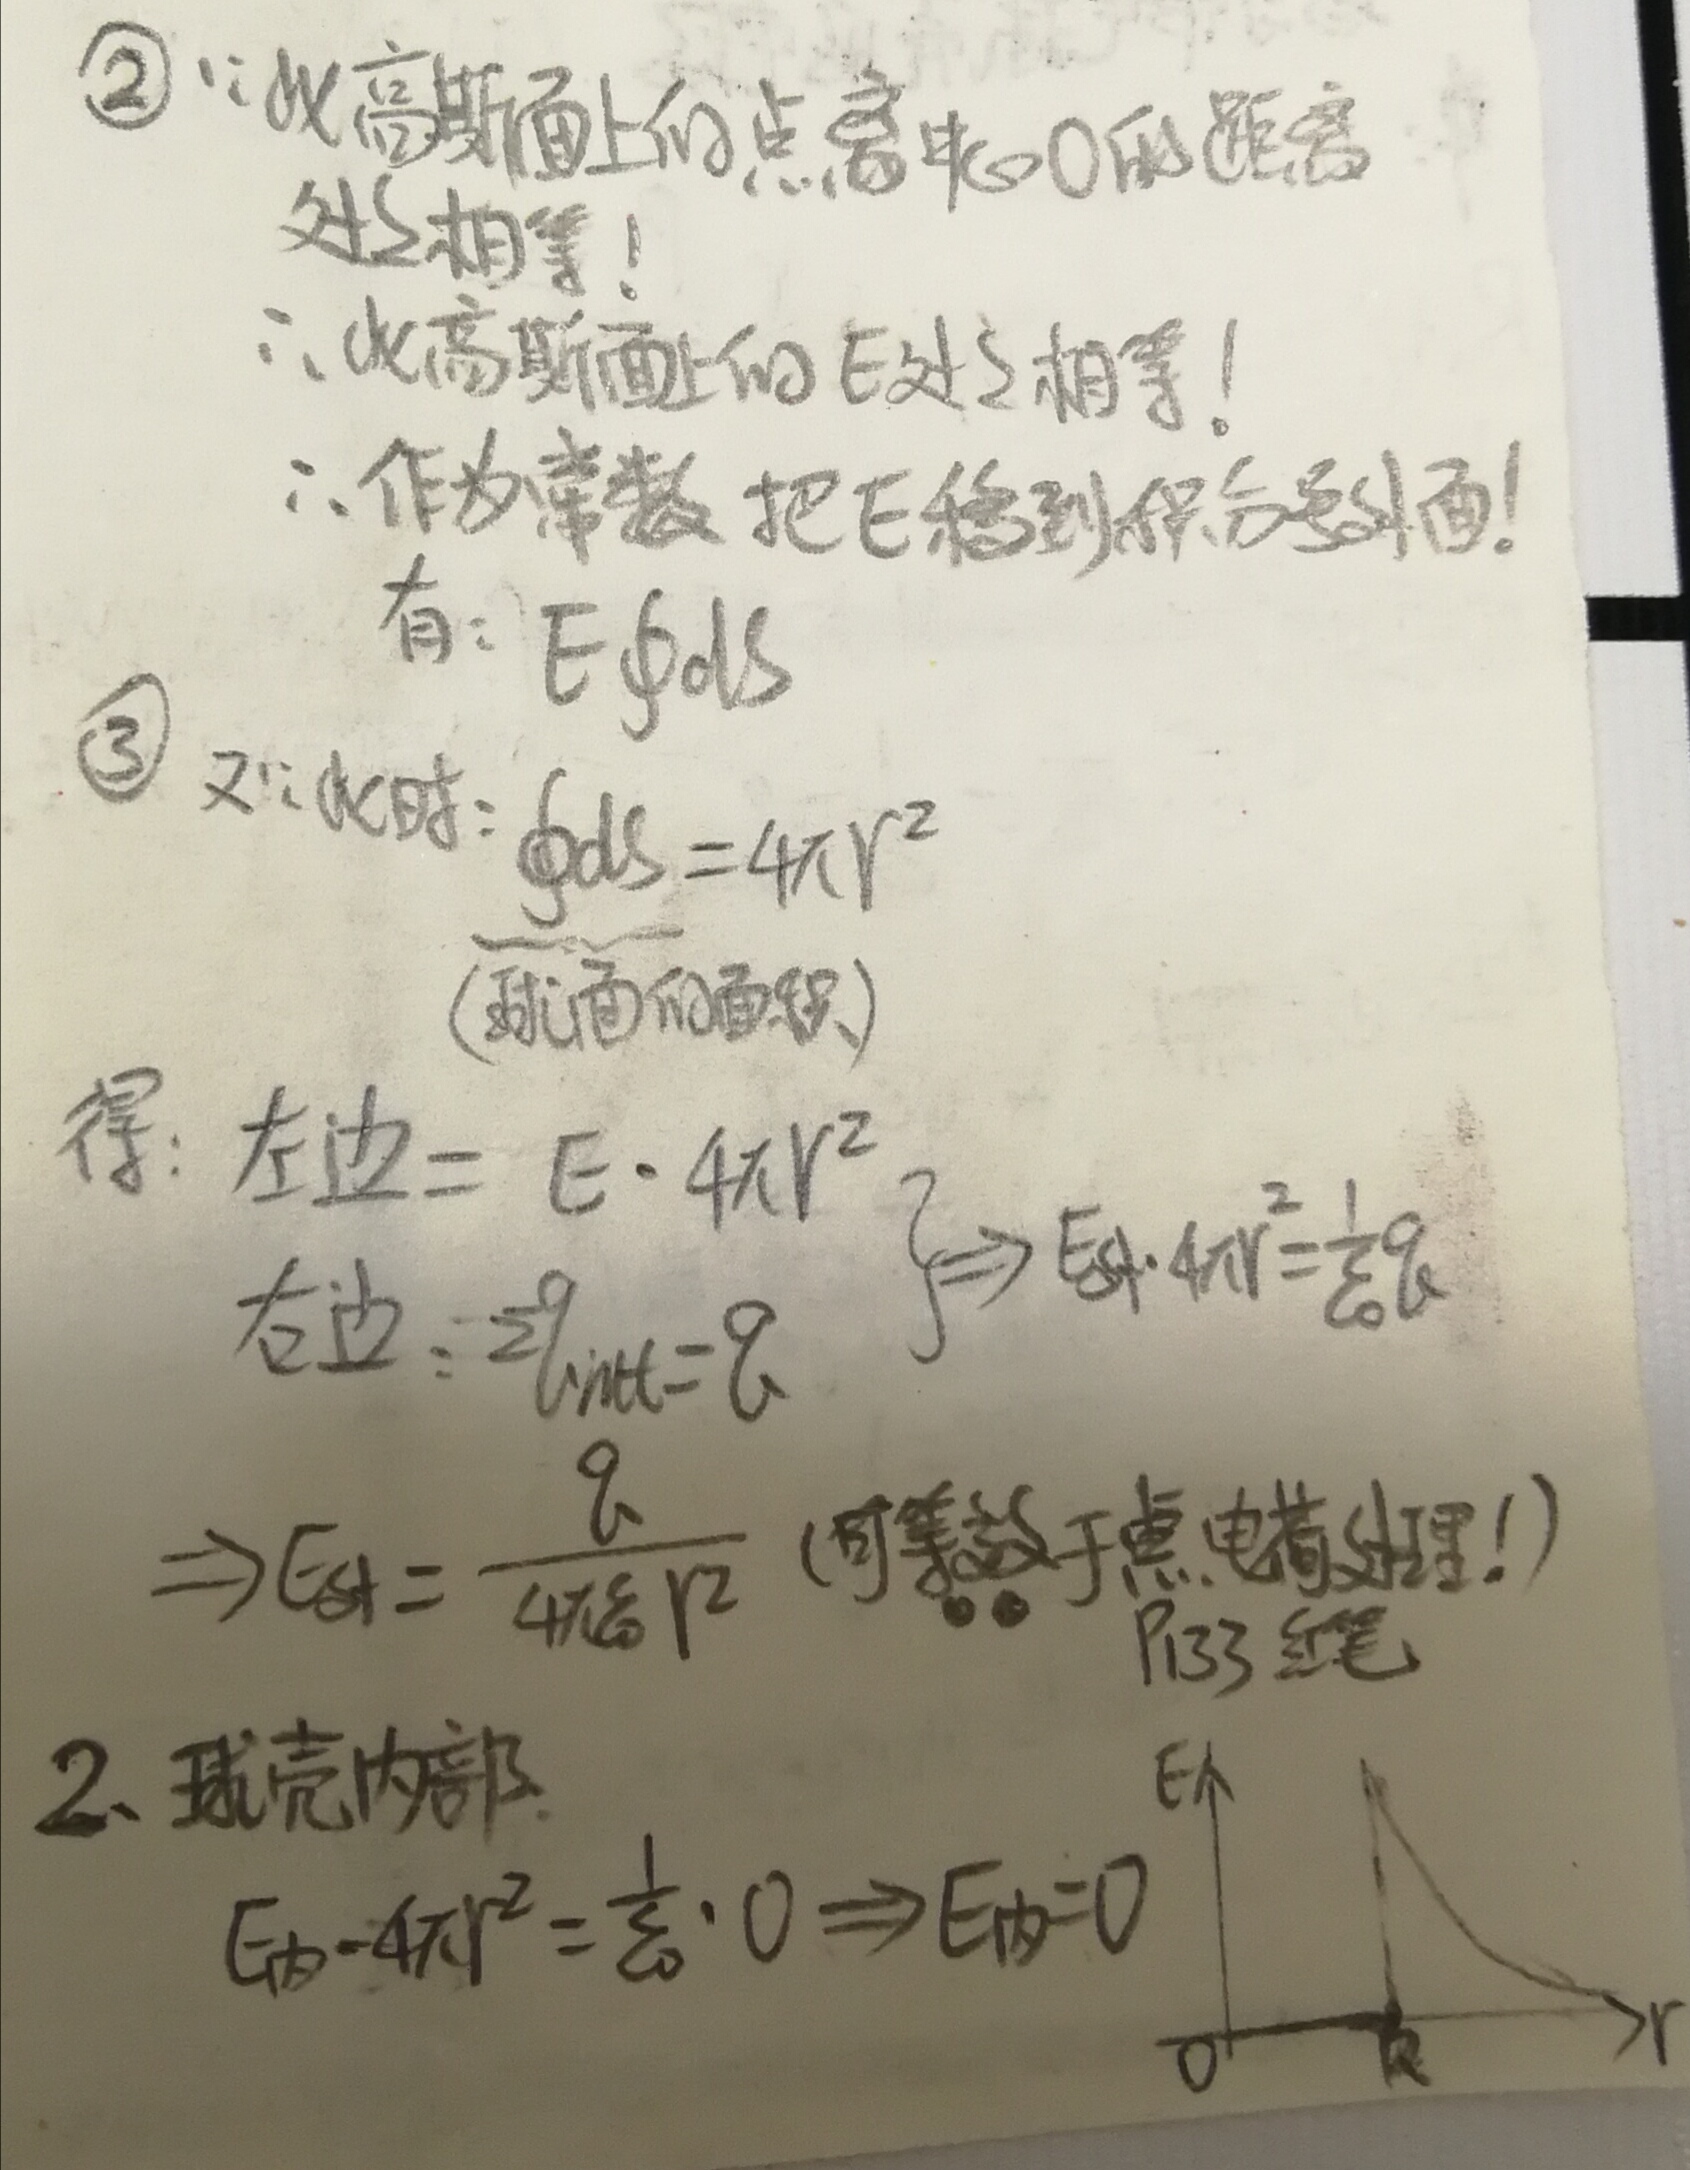 ② ∵此高斯面上的点离中心O的距离
处处相等!
∴此高斯面上的E处处相等!
∴作为常数 把E移到积分号外面!
有: E∮dS
③ 又∵此时: ∮dS = 4πr²
(球面的面积)
得: 左边 = E · 4πr²
右边: Σq_int = q
⇒ E外·4πr² = 1/ε₀ q
⇒ E外 = q / 4πε₀r² (可等效于点电荷处理!)
P133 红笔
2、球壳内部
E内·4πr² = 1/ε₀ · 0 ⇒ E内 = 0
E
O R r